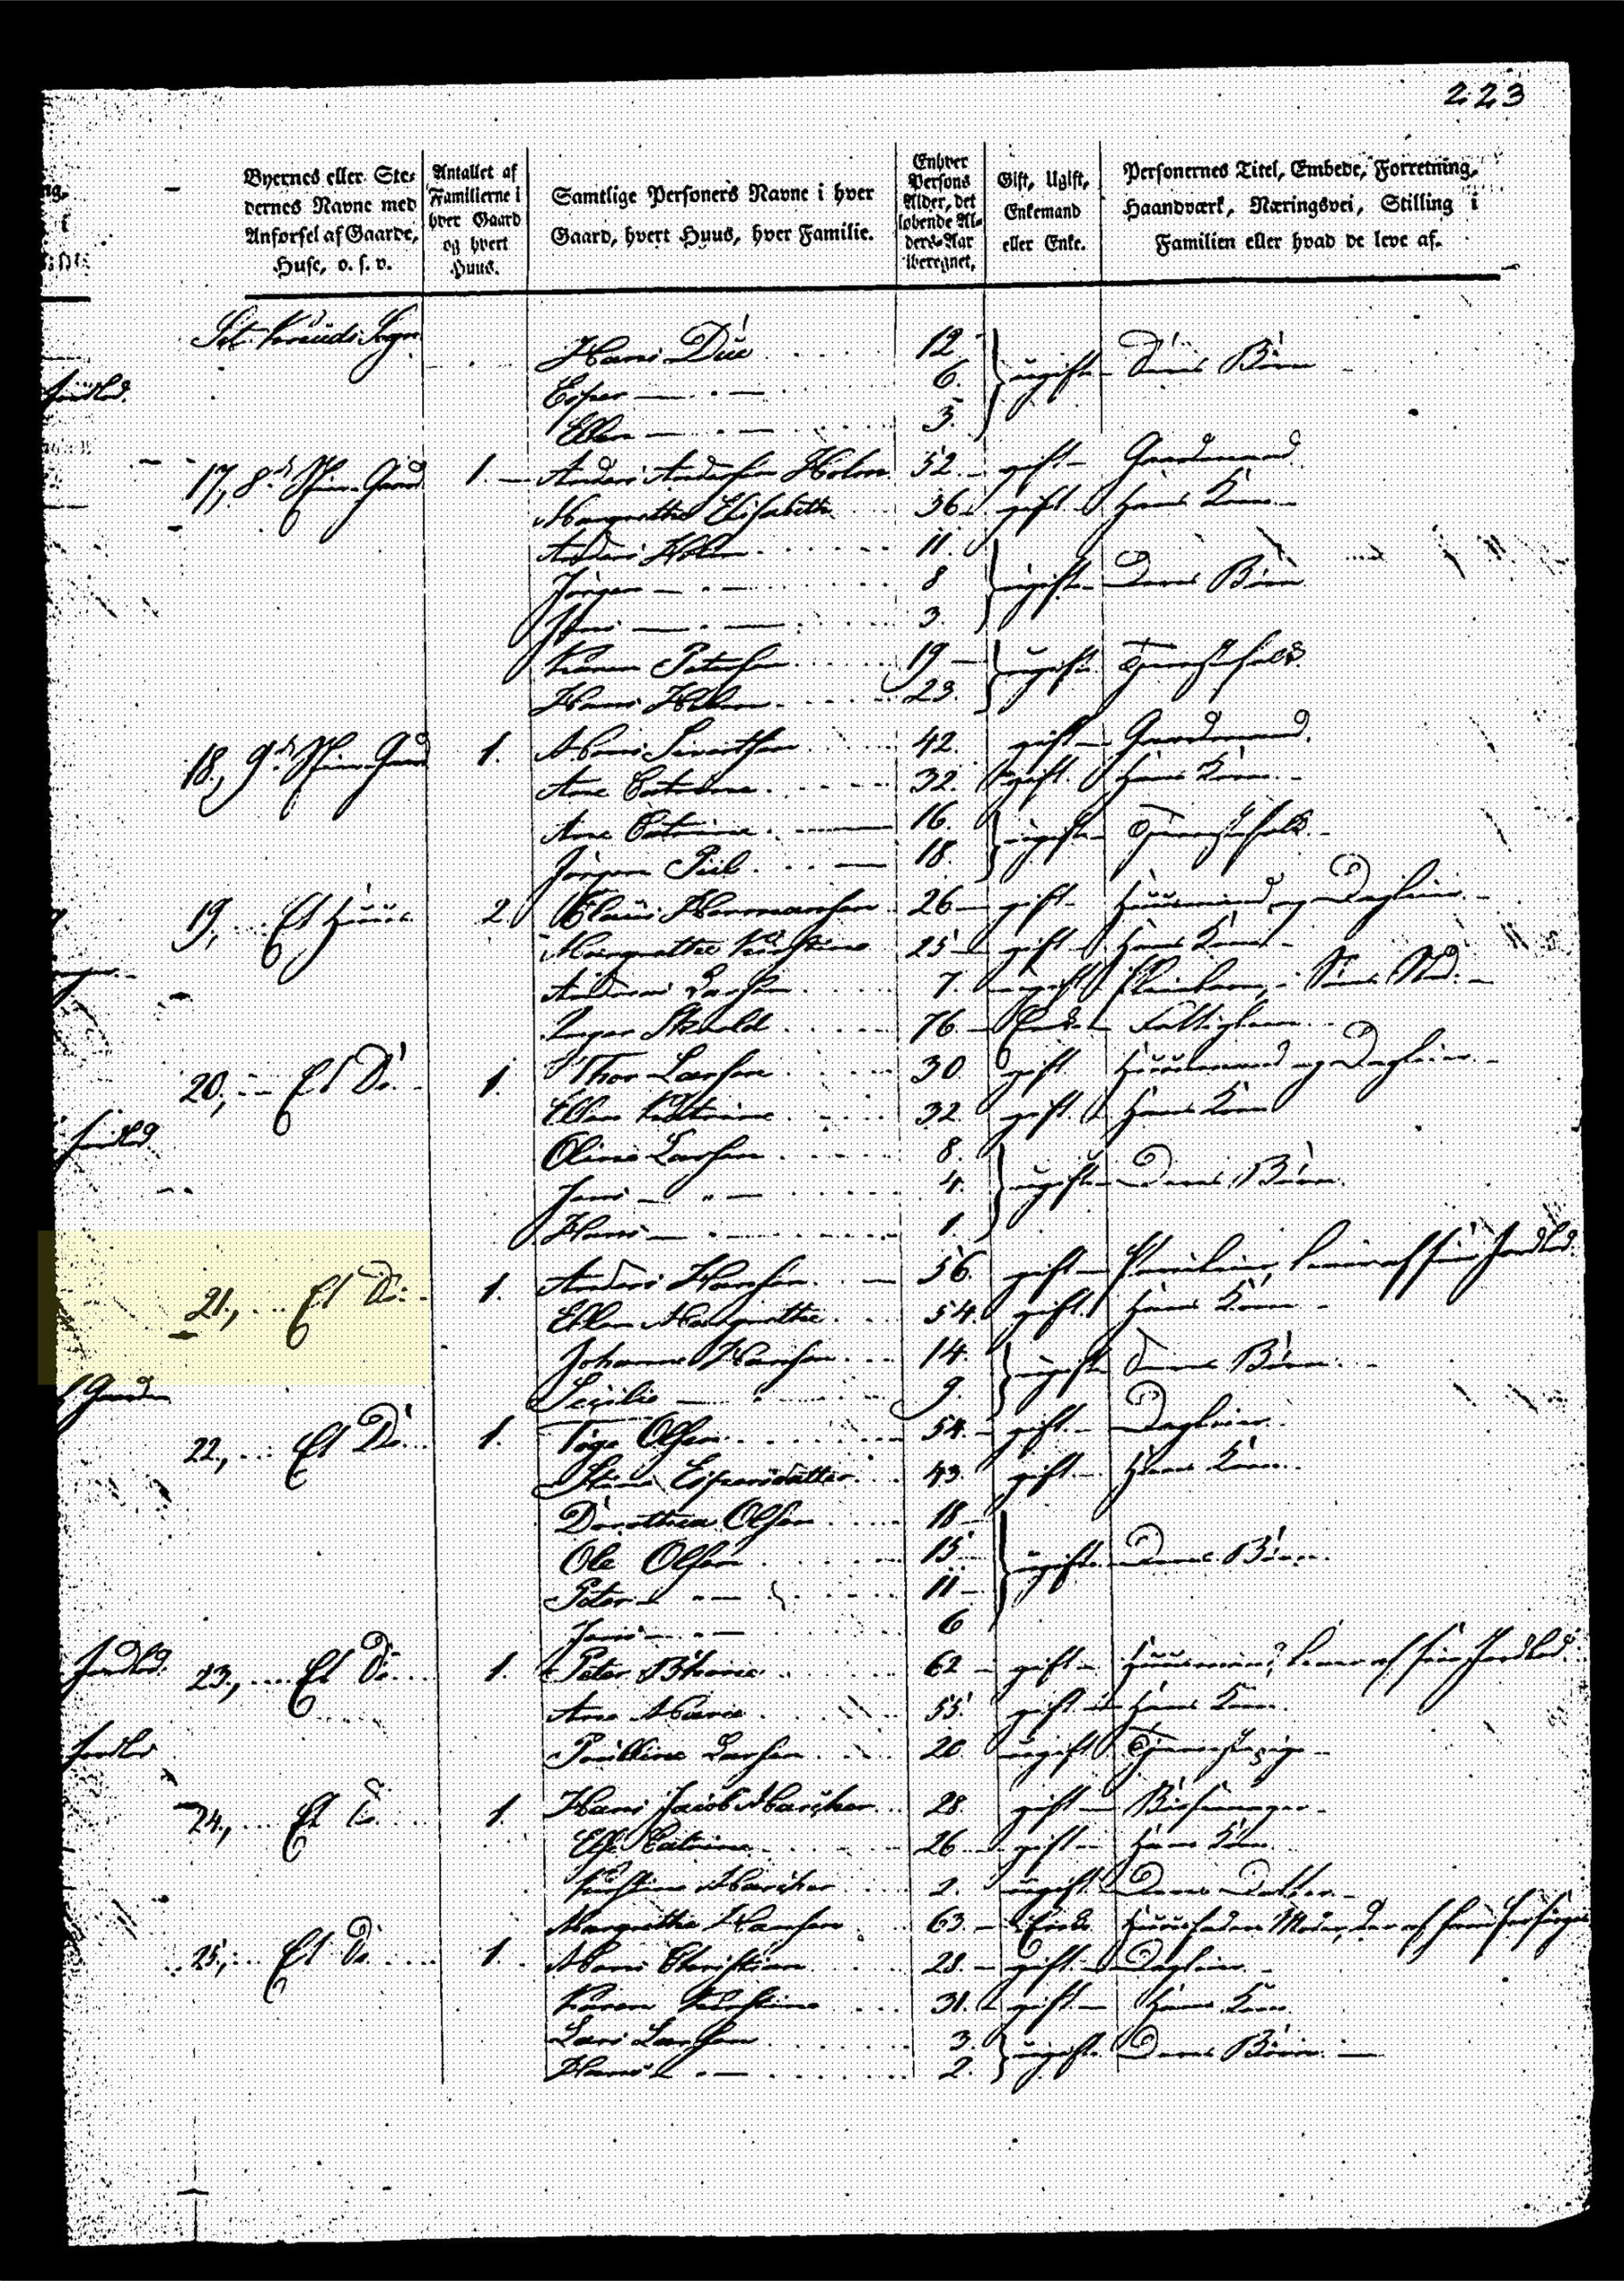 223
Byernes eller Ste-
dernes Navne med
Anførsel af Gaarde,
Huse, o. s. v.
Antallet af
Familierne i
hver Gaard
og hvert
Huus.
Samtlige Personers Navne i hver
Gaard, hvert Huus, hver Familie.
Enhver
Persons
Alder, det
løbende Al-
ders-Aar
iberegnet.
Gift, Ugift,
Enkemand
eller Enke.
Personernes Titel, Embede, Forretning,
Haandværk, Næringsvei, Stilling i
Familien eller hvad de leve af.
Sct. Knuds Sogn
Hans Due 12 ugifte Deres Børn
Esper 6.
Ellen 5.
17, 8de Gaard 1. Anders Andersen Holm 52 gift Gaardmand
Margrethe Elisabeth 36 gift Hans Kone
Anders Holm 11. ugifte Deres Børn
Jörgen 8
Jens 3.
Karen Petersen 19 ugifte Tjenestefolk
Hans Holm 23.
18, 9de Gaard 1. Mons Sivertsen 42. gift Gaardmand.
Ane Cathrine 32. gift Hans Kone
Ane Catrine 16. ugifte Tjenestefolk
Jörgen Piil 18.
19, Et Huus 2 Claus Hermansen 26 gift Huusmand og Dagleier
Margrethe Kirstine 25 gift Hans Kone
Andreas Larsen 7. ugift
Inger 76 Enke Fattiglem
20, Et Do. 1. Thor Larsen 30 gift Huusmand og Dagleier
Ellen Kathrine 32. gift Hans Kone
Oline Larsen 8. ugifte Deres Børn
Jens 4.
Hans 1.
21, Et Do. 1. Anders Hansen 56. gift lever af sin Jordlod.
Ellen Margrethe 54. gift Hans Kone
Johanne Hansen 14. ugifte Deres Børn
Secilie 9.
22, Et Do. 1. Tÿge Olsen 54. gift Dagleier
Stine Espersdatter 43. gift Hans Kone
Dorothea Olsen 18 ugifte Deres Børn
Ole Olsen 15
Peter 11
Jens 6
23, Et Do. 1. Peter 62 gift Huusmand, lever af sin Jordlod.
Ane Marie 55. gift Hans Kone
Pouline Larsen 20 ugift Tjenestepige
24, Et Do. 1. Hans Jacob Marcher 28. gift Bøssemager
Else Catrine 26 gift Hans Kone
Kirstine Marcher 2. ugift Deres Datter
Margrethe Hansen 63. Enke Huusfaders Moder, der af ham forsørges
25, Et Do. 1. Mons Christian 28. gift Dagleier
Karen Kirstine 31. gift Hans Kone
Lars Larsen 3. ugifte Deres Børn
Hans 2.